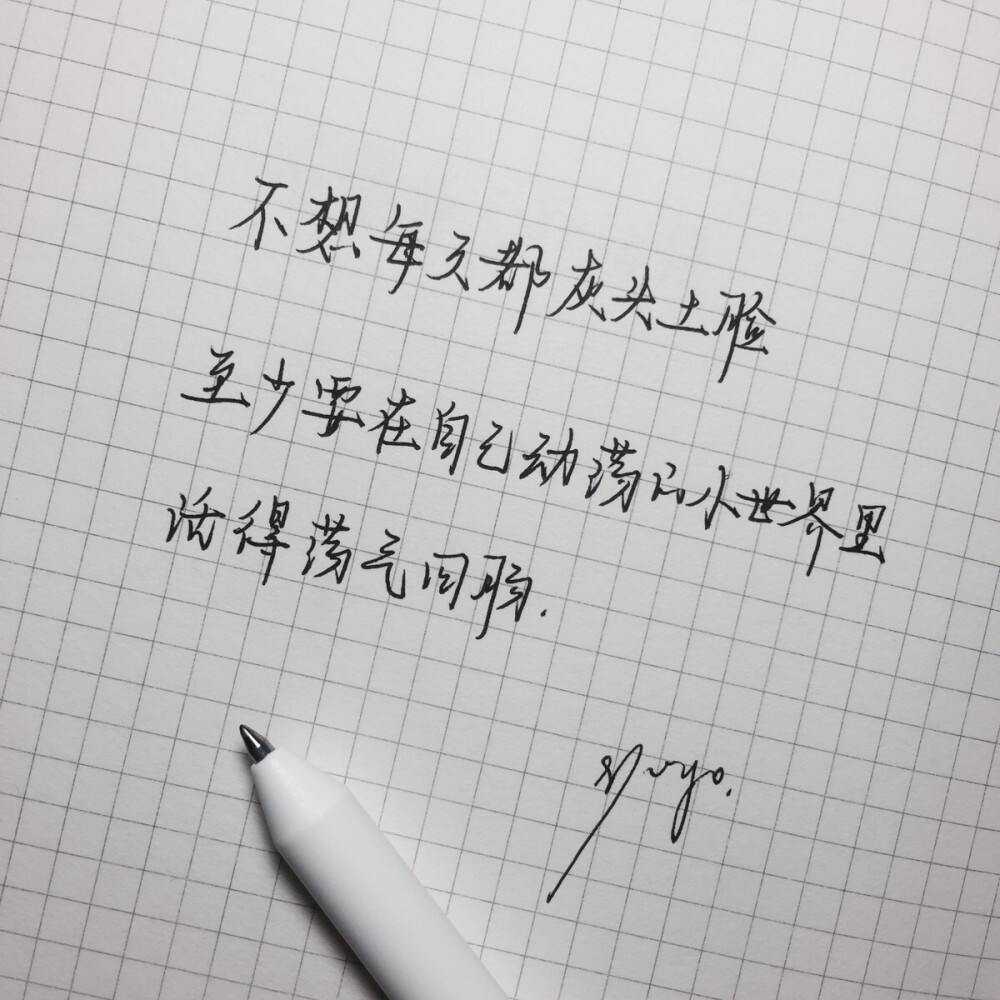 不想每天都灰头土脸
至少要在自己动荡的小世界里
活得荡气回肠.